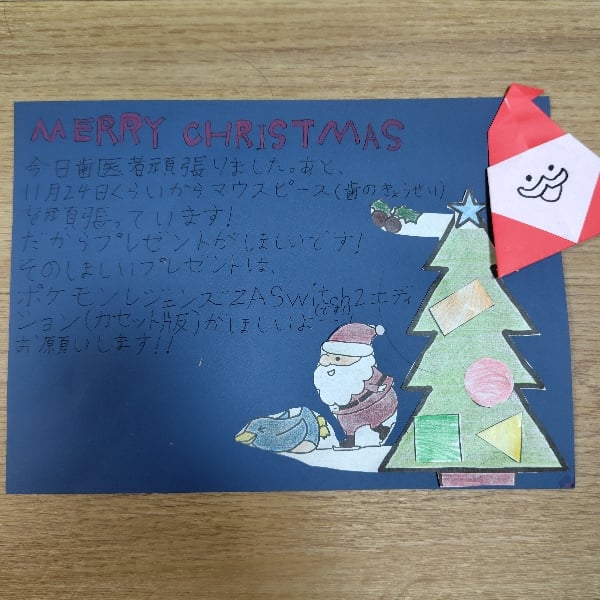 MERRY CHRISTMAS
今日歯医者頑張りました。あと、
11月24日くらいからマウスピース(歯のきょうせい)
を頑張っています!
だからプレゼントがほしいです!
そのほしいプレゼントは、
ポケモンレジェンズZASwitch2エディ
ション(カセット版)がほしいよ
お願いします!!